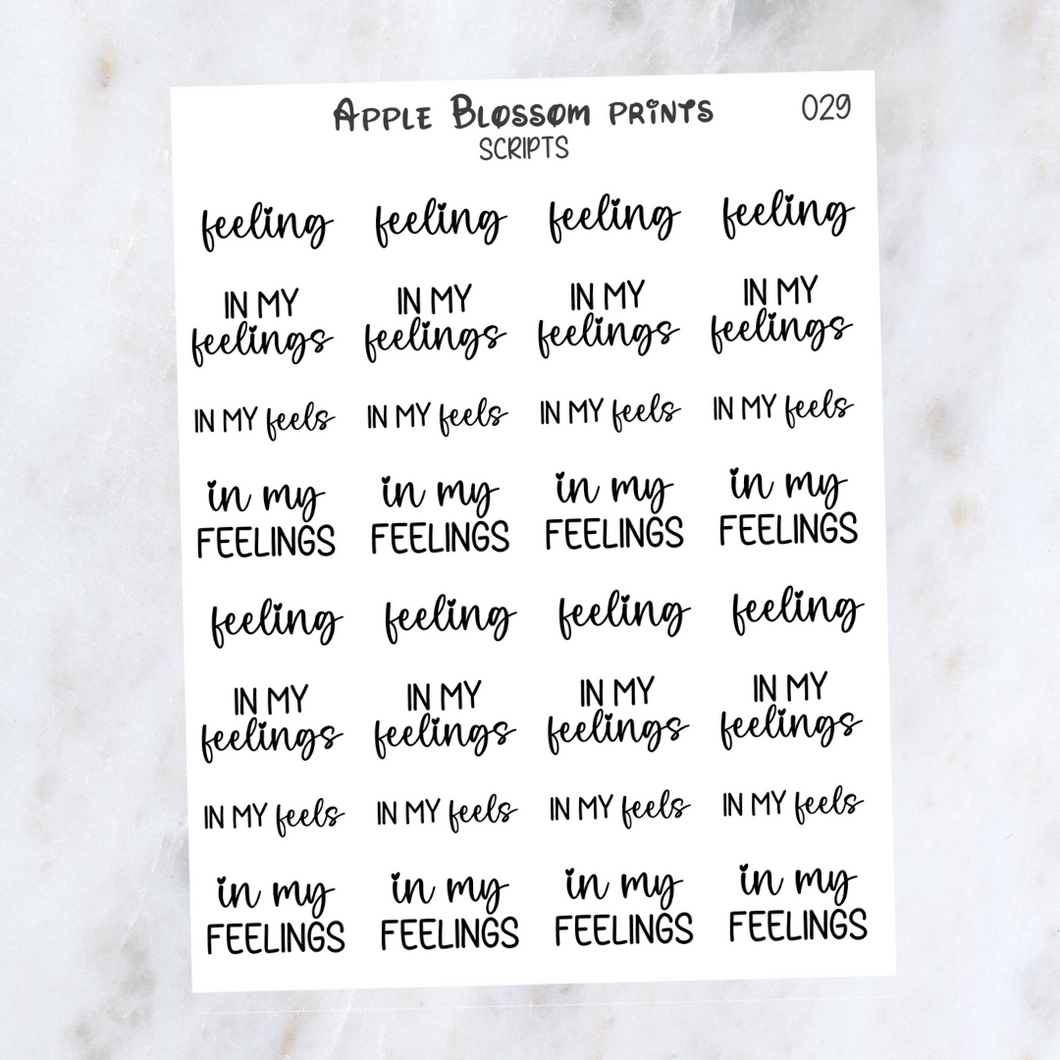 Apple Blossom Prints 029
SCRIPTS
feeling feeling feeling feeling
IN MY IN MY IN MY IN MY
feelings feelings feelings feelings
IN MY feels IN MY feels IN MY feels IN MY feels
in my in my in my in my
FEELINGS FEELINGS FEELINGS FEELINGS
feeling feeling feeling feeling
IN MY IN MY IN MY IN MY
feelings feelings feelings feelings
IN MY feels IN MY feels IN MY feels IN MY feels
in my in my in my in my
FEELINGS FEELINGS FEELINGS FEELINGS